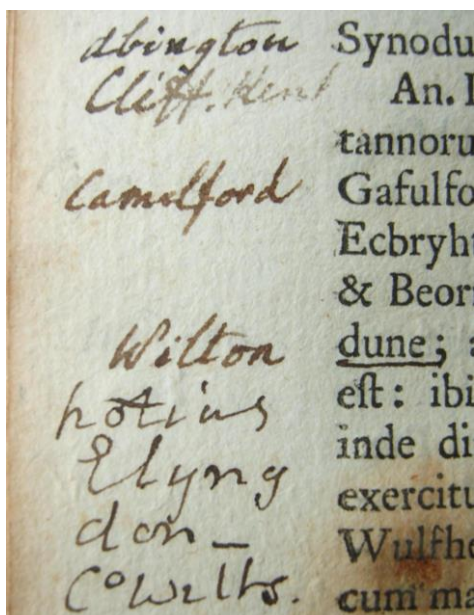 Abington
Cliff. Kent
Camelford
Wilton
potius
Elyng
don_
Co Wilts.
Synodu
An. D
tannoru
Gafulfo
Ecbryht
& Beorn
dune; a
est: ibi
inde di
exercitu
Wulfhe
cum ma